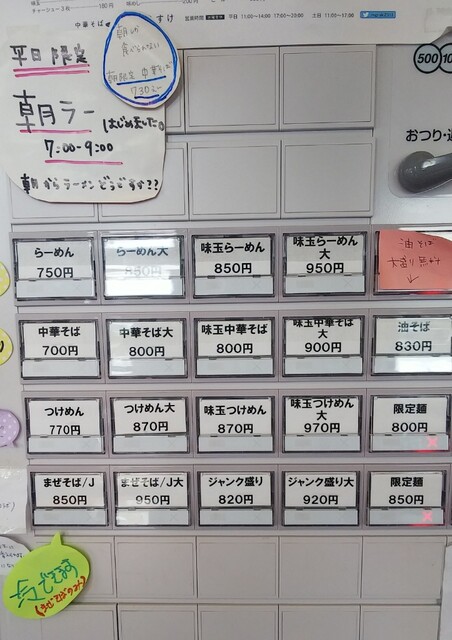 チャーシュー3枚
180円
中華そば
すけ
営業時間
平日 11:00~14:00 17:00~20:00
土日 11:00~17:00
平日限定
朝ラー はじめました。
7:00-9:00
朝からラーメンどうですか??
朝しか
食べられない
朝限定 中華そば
730円
500
おつり・返
らーめん
750円
らーめん大
850円
味玉らーめん
850円
味玉らーめん大
950円
油そば
大盛り無料
↑
中華そば
700円
中華そば大
800円
味玉中華そば
800円
味玉中華そば大
900円
油そば
830円
つけめん
770円
つけめん大
870円
味玉つけめん
870円
味玉つけめん大
970円
限定麺
800円
まぜそば/J
850円
まぜそば/J大
950円
ジャンク盛り
820円
ジャンク盛り大
920円
限定麺
850円
今できます
(まぜそばのみ)